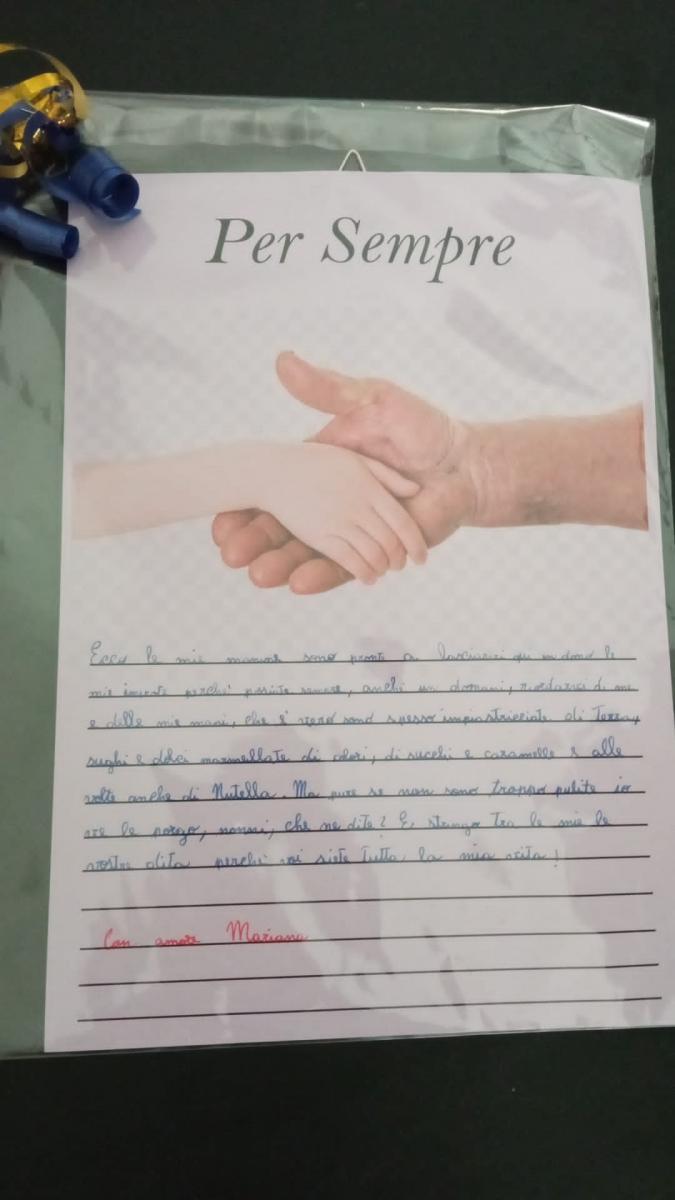 Per Sempre
Ecco le mie manine sono pronte a lasciarvi qui in dono le
mie impronte perchè possiate sempre, anche un domani, ricordarvi di me
e delle mie mani, che è vero sono spesso impiastricciate di Terra,
sughi e dolci marmellate di colori, di succhi e caramelle e alle
volte anche di Nutella. Ma pure se non sono troppo pulite io
ve le porgo, nonni, che ne dite? E, stringo tra le mie le
vostre dita perchè voi siete Tutta la mia vita!
Con amore Mariana